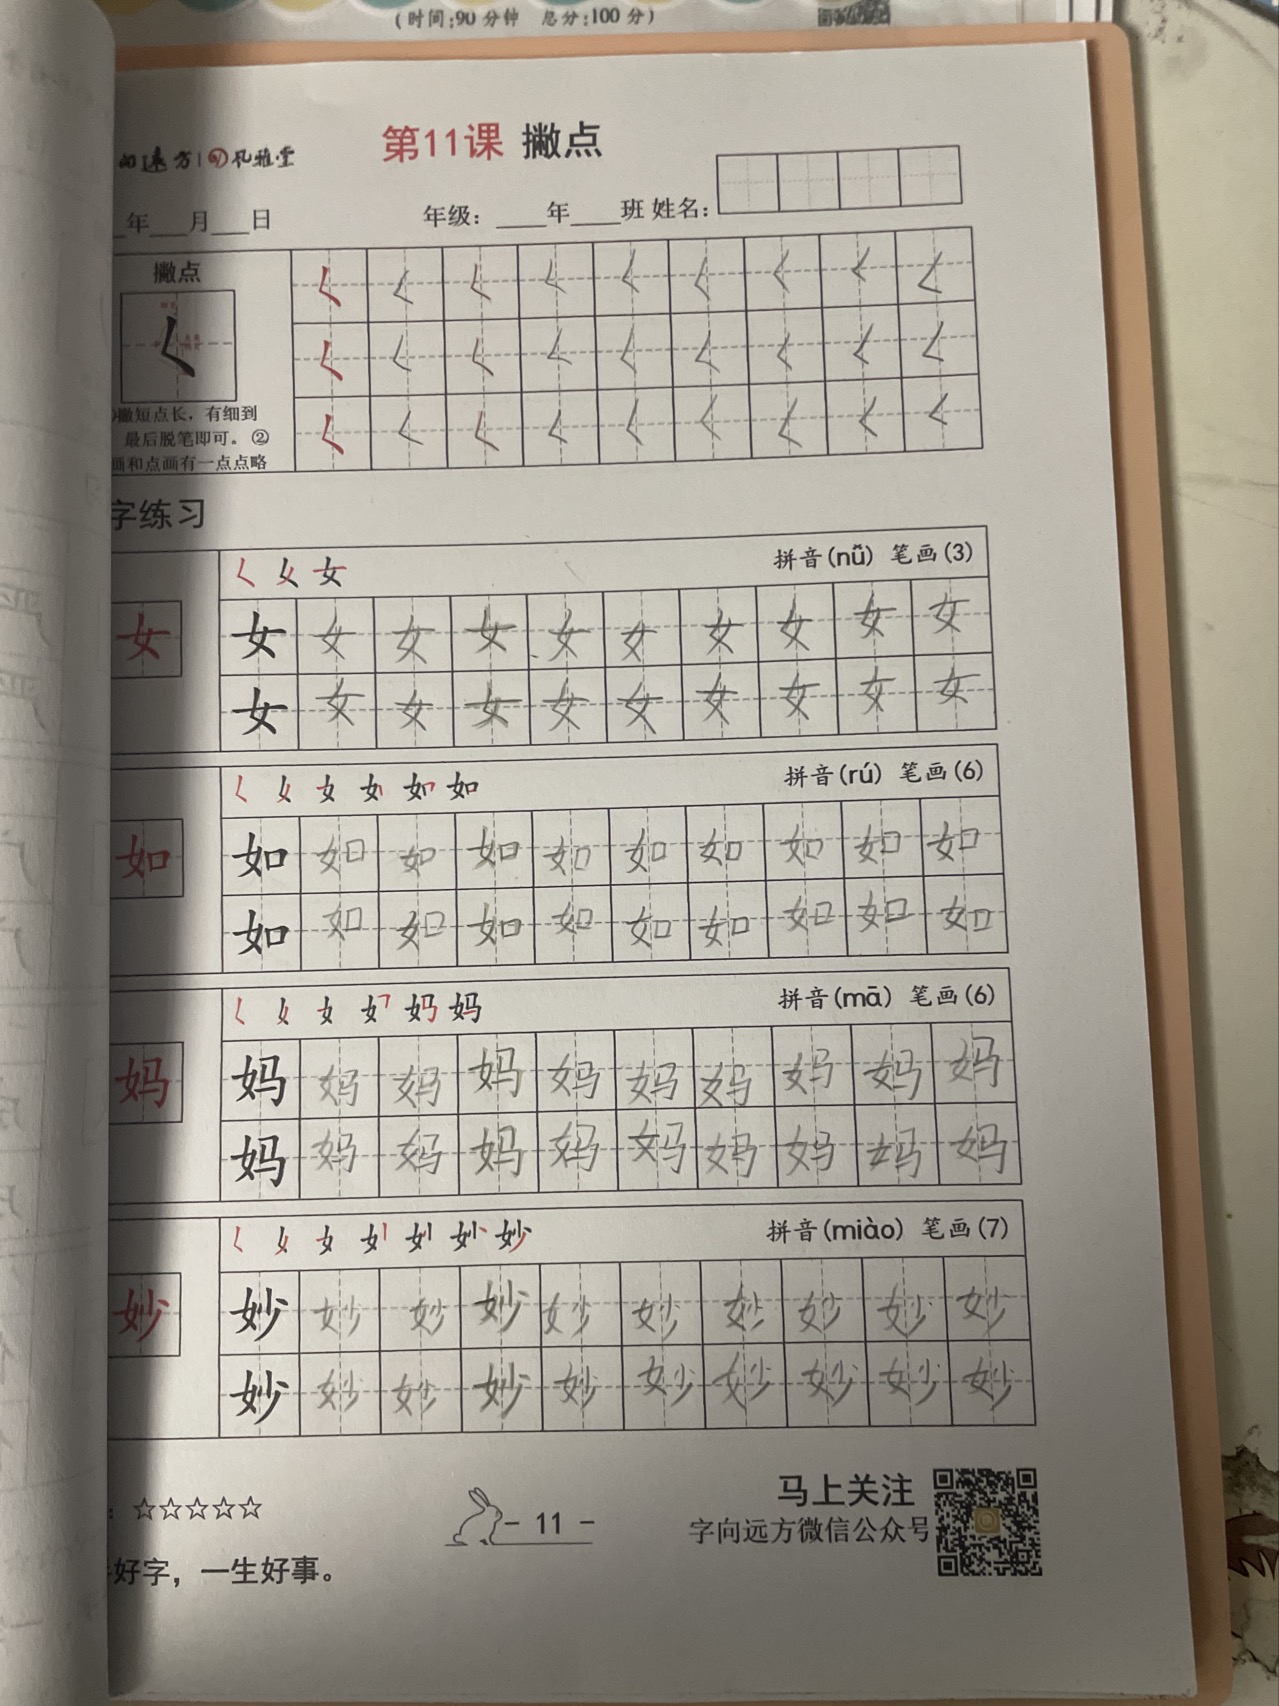 (时间:90分钟 总分:100分)
远方 风雅堂
第11课 撇点
年 月 日 年级: 年 班 姓名:
撇点
撇短点长，有细到
最后脱笔即可。②
画和点画有一点点略
字练习
拼音(nǚ) 笔画(3)
女 女 女 女 女 女 女 女 女 女 女
女 女 女 女 女 女 女 女 女 女
拼音(rú) 笔画(6)
如 如 如 如 如 如 如 如 如 如 如
如 如 如 如 如 如 如 如 如 如
拼音(mā) 笔画(6)
妈 妈 妈 妈 妈 妈 妈 妈 妈 妈 妈
妈 妈 妈 妈 妈 妈 妈 妈 妈 妈
拼音(miào) 笔画(7)
妙 妙 妙 妙 妙 妙 妙 妙 妙 妙 妙
妙 妙 妙 妙 妙 妙 妙 妙 妙 妙
☆☆☆☆☆
- 11 -
马上关注
字向远方微信公众号
好字，一生好事。